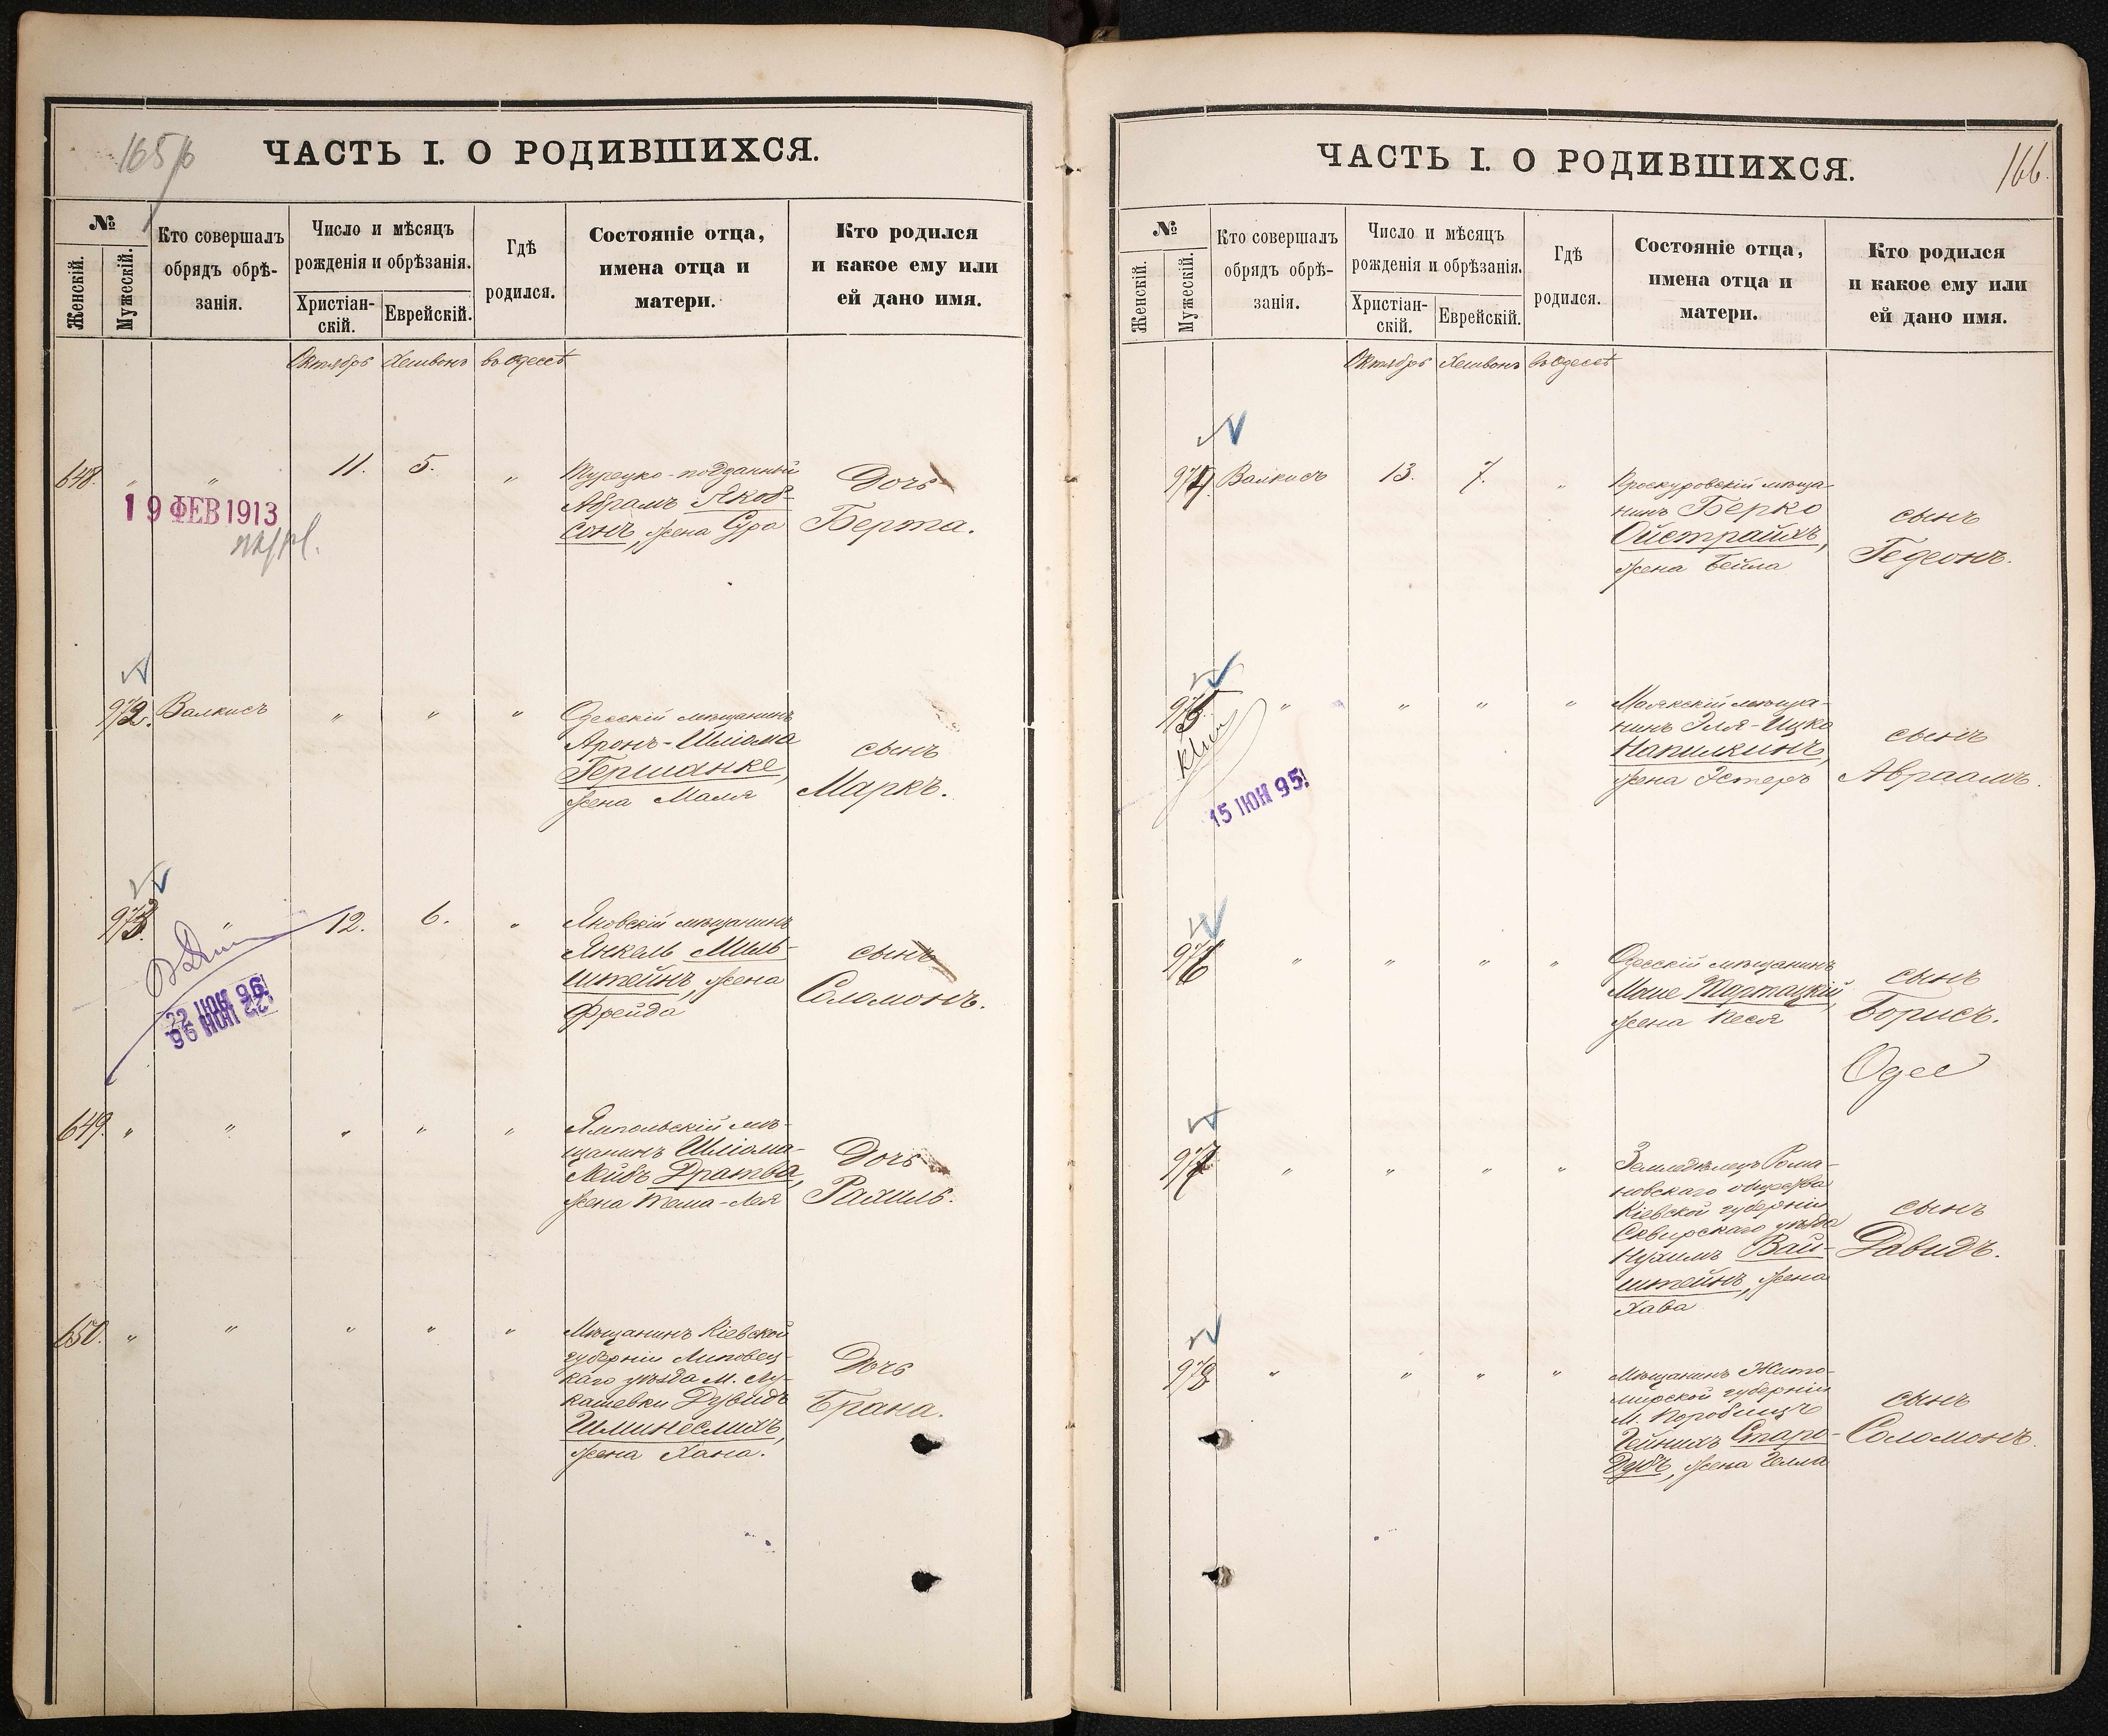 165/б
ЧАСТЬ I. О РОДИВШИХСЯ.
№
Женскій.
Мужескій.
Кто совершалъ
обрядъ обрѣ-
занія.
Число и мѣсяцъ
рожденія и обрѣзанія.
Христіан-
скій.
Еврейскій.
Гдѣ
родился.
Состояніе отца,
имена отца и
матери.
Кто родился
и какое ему или
ей дано имя.
Октябрь Хешвонъ въ Одессѣ
648. " " 11. 5. "
Турецко-подданный
Абрамъ Якоб-
сонъ, жена Сура
Дочь
Берта.
19 ФЕВ 1913
972. Валкисъ " " "
Одесскій мѣщанинъ
Аронъ-Шліома
Гершанке,
жена Маля
сынъ
Маркъ.
973. " 12. 6. "
Яновскій мѣщанинъ
Янкель Миль-
штейнъ, жена
Фрейда
сынъ
Соломонъ.
22 ІЮН 96!
22 ІЮН 96
649. " " " " "
Ямпольскій мѣ-
щанинъ Шліома-
Лейбъ Дратва,
жена Тема-Лея
Дочь
Рахиль.
650. " " " " "
Мѣщанинъ Кіевской
губерніи Липовец-
каго уѣзда М. Лу-
кашевки Дувидъ
Шлинеслихъ,
жена Хана.
Дочь
Брана.
ЧАСТЬ I. О РОДИВШИХСЯ.
166.
№
Женскій.
Мужескій.
Кто совершалъ
обрядъ обрѣ-
занія.
Число и мѣсяцъ
рожденія и обрѣзанія.
Христіан-
скій.
Еврейскій.
Гдѣ
родился.
Состояніе отца,
имена отца и
матери.
Кто родился
и какое ему или
ей дано имя.
Октябрь Хешвонъ въ Одессѣ
974. Валкисъ 13. 7. "
Проскуровскій мѣща-
нинъ Берко
Ойстрайхъ,
жена Бейла
сынъ
Гедеонъ.
975 " " " "
Маякскій мѣща-
нинъ Эля-Ицко
Напилкинъ,
жена Эстеръ
сынъ
Авраамъ.
15 ІЮН 95!
976 " " " "
Одесскій мѣщанинъ
Моше Тартацкій,
жена Песя
сынъ
Борисъ.
Одес
977 " " " "
Земледѣлецъ Рома-
новскаго общества
Кіевской губерніи
Сквирскаго уѣзда
Нухимъ Вай-
штейнъ, жена
Хава
сынъ
Давидъ.
978 " " " "
Мѣщанинъ Жито-
мирской губерніи
М. Коробищъ
Гейнихъ Старо-
Дубъ, жена Гелла
сынъ
Соломонъ.